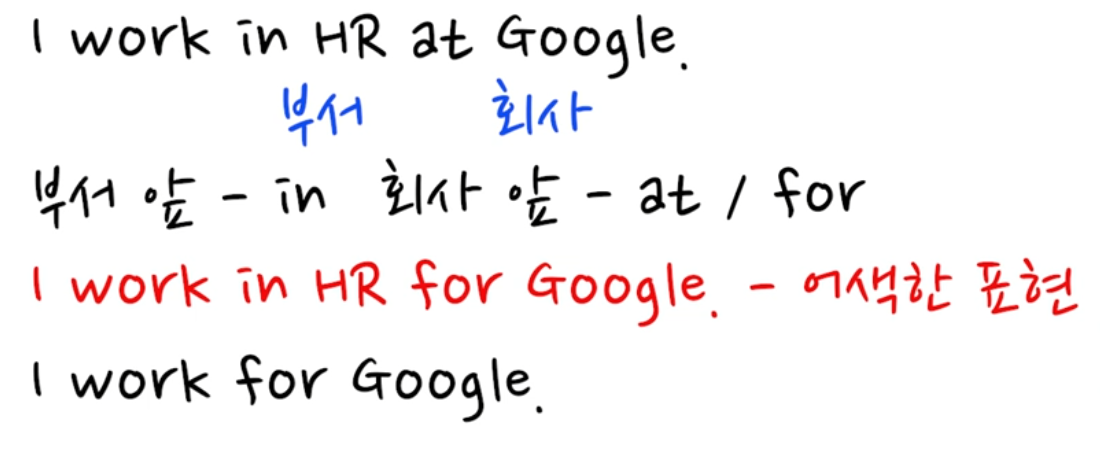 I work in HR at Google.
부서 회사
부서 앞 - in 회사 앞 - at / for
I work in HR for Google. - 어색한 표현
I work for Google.